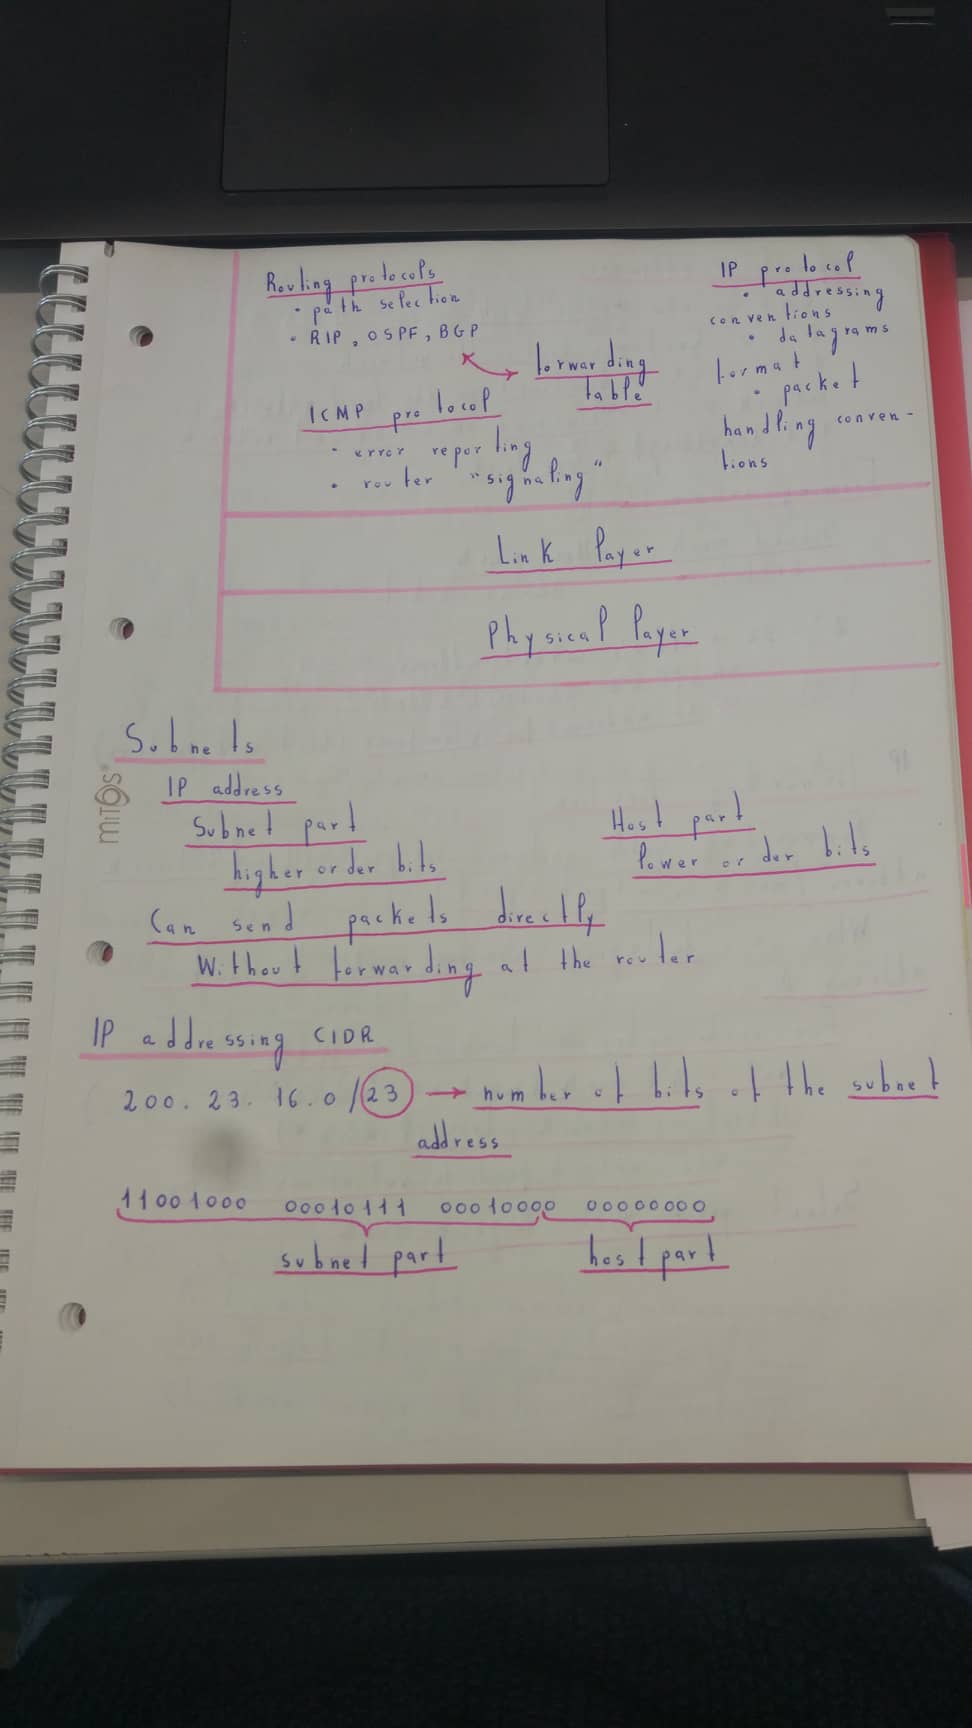 Routing protocols
• path selection
• RIP, OSPF, BGP
forwarding
table
ICMP protocol
• error reporting
• router "signaling"
IP protocol
• addressing
conventions
• datagrams
format
• packet
handling conven-
tions
Link layer
Physical layer
Subnets
mitos
IP address
Subnet part
higher order bits
Host part
lower order bits
Can send packets directly
Without forwarding at the router
IP addressing CIDR
200.23.16.0/23 → number of bits of the subnet
address
11001000 00010111 00010000 00000000
subnet part host part